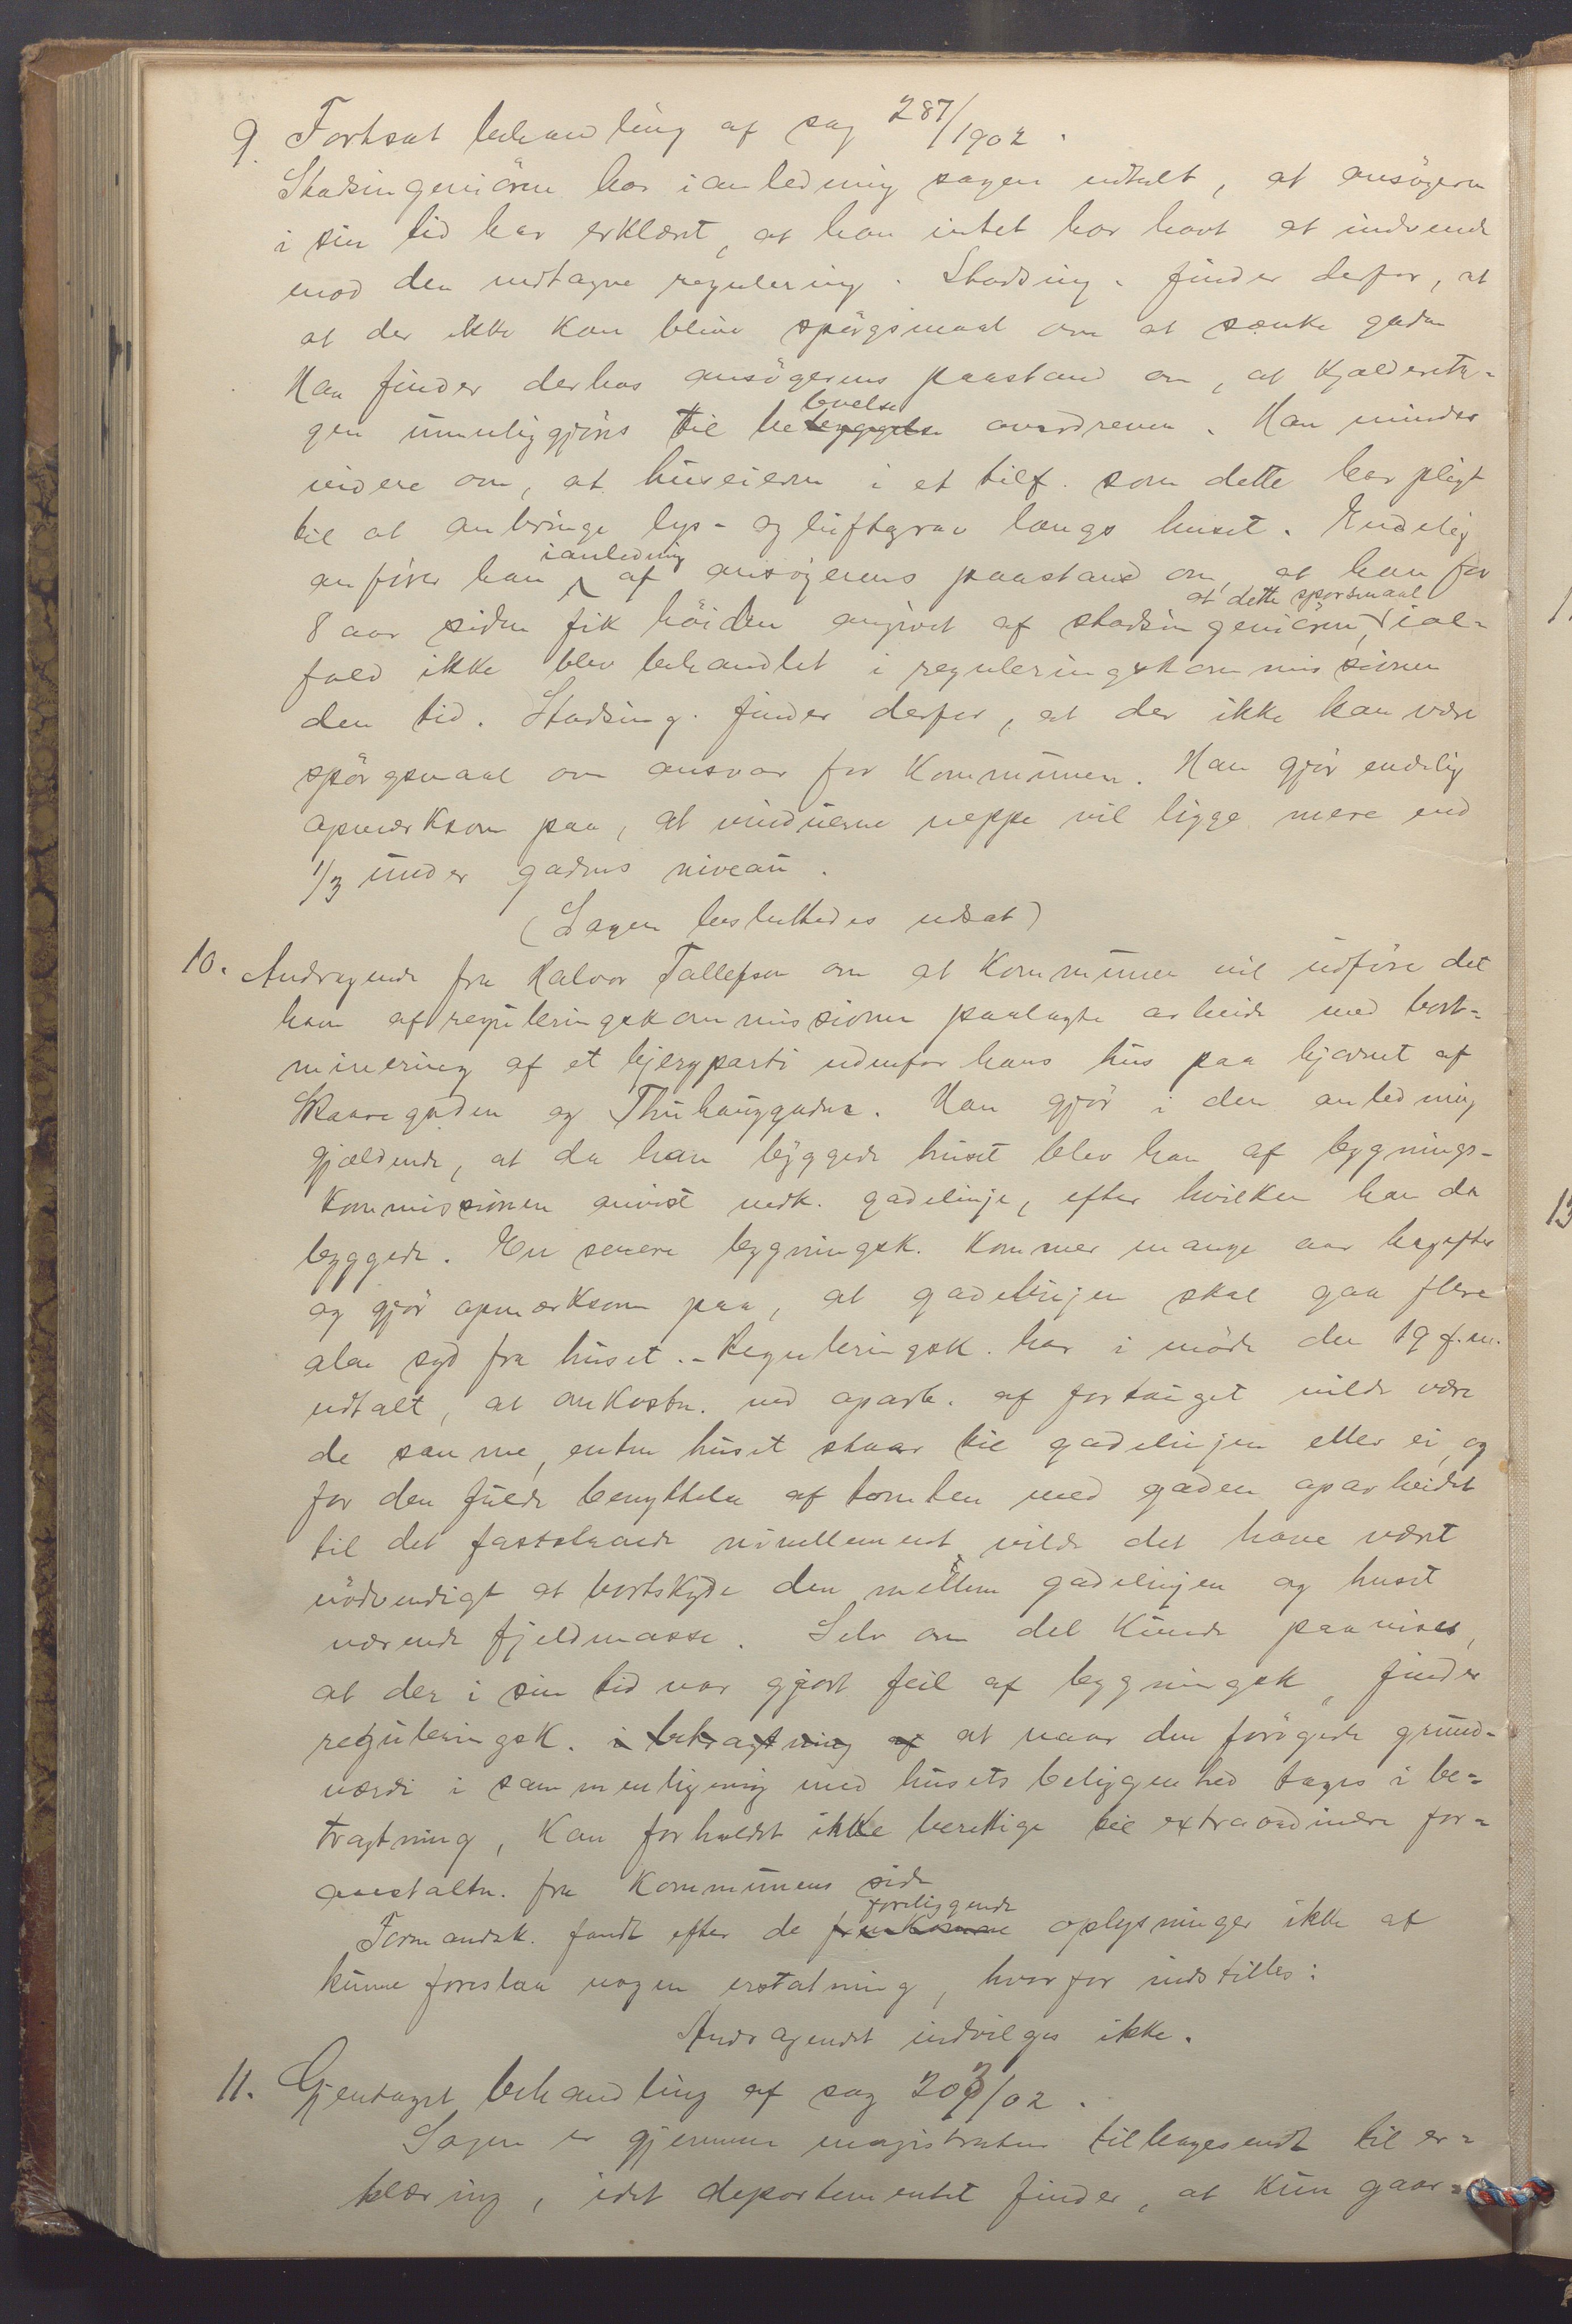 9. Fortsat behandling af sag 287/1902.
Stadsingeniören har i anledning sagen udtalt, at ansögeren
i sin tid har erklært, at han intet har havt at indvende
mod den vedtagne regulering. Stadsing. finder derfor, at
at der ikke kan blive spörgsmaal om at sænke gaden
Han finder derhos ansögerens paastand om, at kjældereta-
gen umuliggjöres til beboelse overdreven. Han minder
videre om, at huseieren i et tilf. som dette har pligt
til at anbringe lys- og luftgrav langs huset. Endelig
anförer han ianledning af ansögerens paastand om, at han for
8 aar siden fik höiden angivet af stadsingeniören, at dette sporsmaal ial-
fald ikke blev behandlet i reguleringskommissionen
den tid. Stadsing. finder derfor, at der ikke kan være
spörgsmaal om ansvar for Kommunen. Han gjör endelig
opmærksom paa, at vinduerne neppe vil ligge mere end
1/3 under gadens niveau.
(Sagen besluttedes udsat)
10. Andragende fra Halvor Tallefsen om at Kommunen vil udföre det
ham af reguleringskommissionen paalagte arbeide med bort-
minering af et bjergparti udenfor hans hus paa hjörnet af
Skaaregaden og Thuhauggaden. Han gjör i den anledning
gjældende, at da han byggede huset blev han af bygnings-
kommissionen anvist vedk. gadelinje, efter hvilken han da
byggede. En senere bygningsk. kommer mange aar bagefter
og gjör opmærksom paa, at gadelinjen skal gaa flere
alen syd fra huset. - Reguleringsk. har i möde den 19 f.m.
udtalt, at omkostn. ved oparb. af fortauget vilde være
de samme, enten huset staar til gadelinjen eller ei, og
for den fulde benyttelse af tomten med gaden oparbeidet
til det fastslaaede nivellement, vilde det have været
nödvendigt at bortskyde den mellem gadelinjen og huset
værende fjeldmasse. Selv om det kunde paavises,
at der i sin tid var gjort feil af bygningsk, finder
reguleringsk. i betragtning af at naar den forögede grund-
værdi i sammenligning med husets beliggenhed tages i be-
tragtning, kan forholdet ikke berettige til extraordinære for-
anstaltn. fra Kommunens side
Formandsk. fandt efter de foreliggende oplysninger ikke at
kunne foreslaa nogen erstatning, hvorfor indstilles:
Andragendet indvilges ikke.
11. Gjentaget behandling af sag 203/02.
Sagen er gjennem magistraten tilbagesendt til er-
klæring, idet departementet finder, at kun gaar-